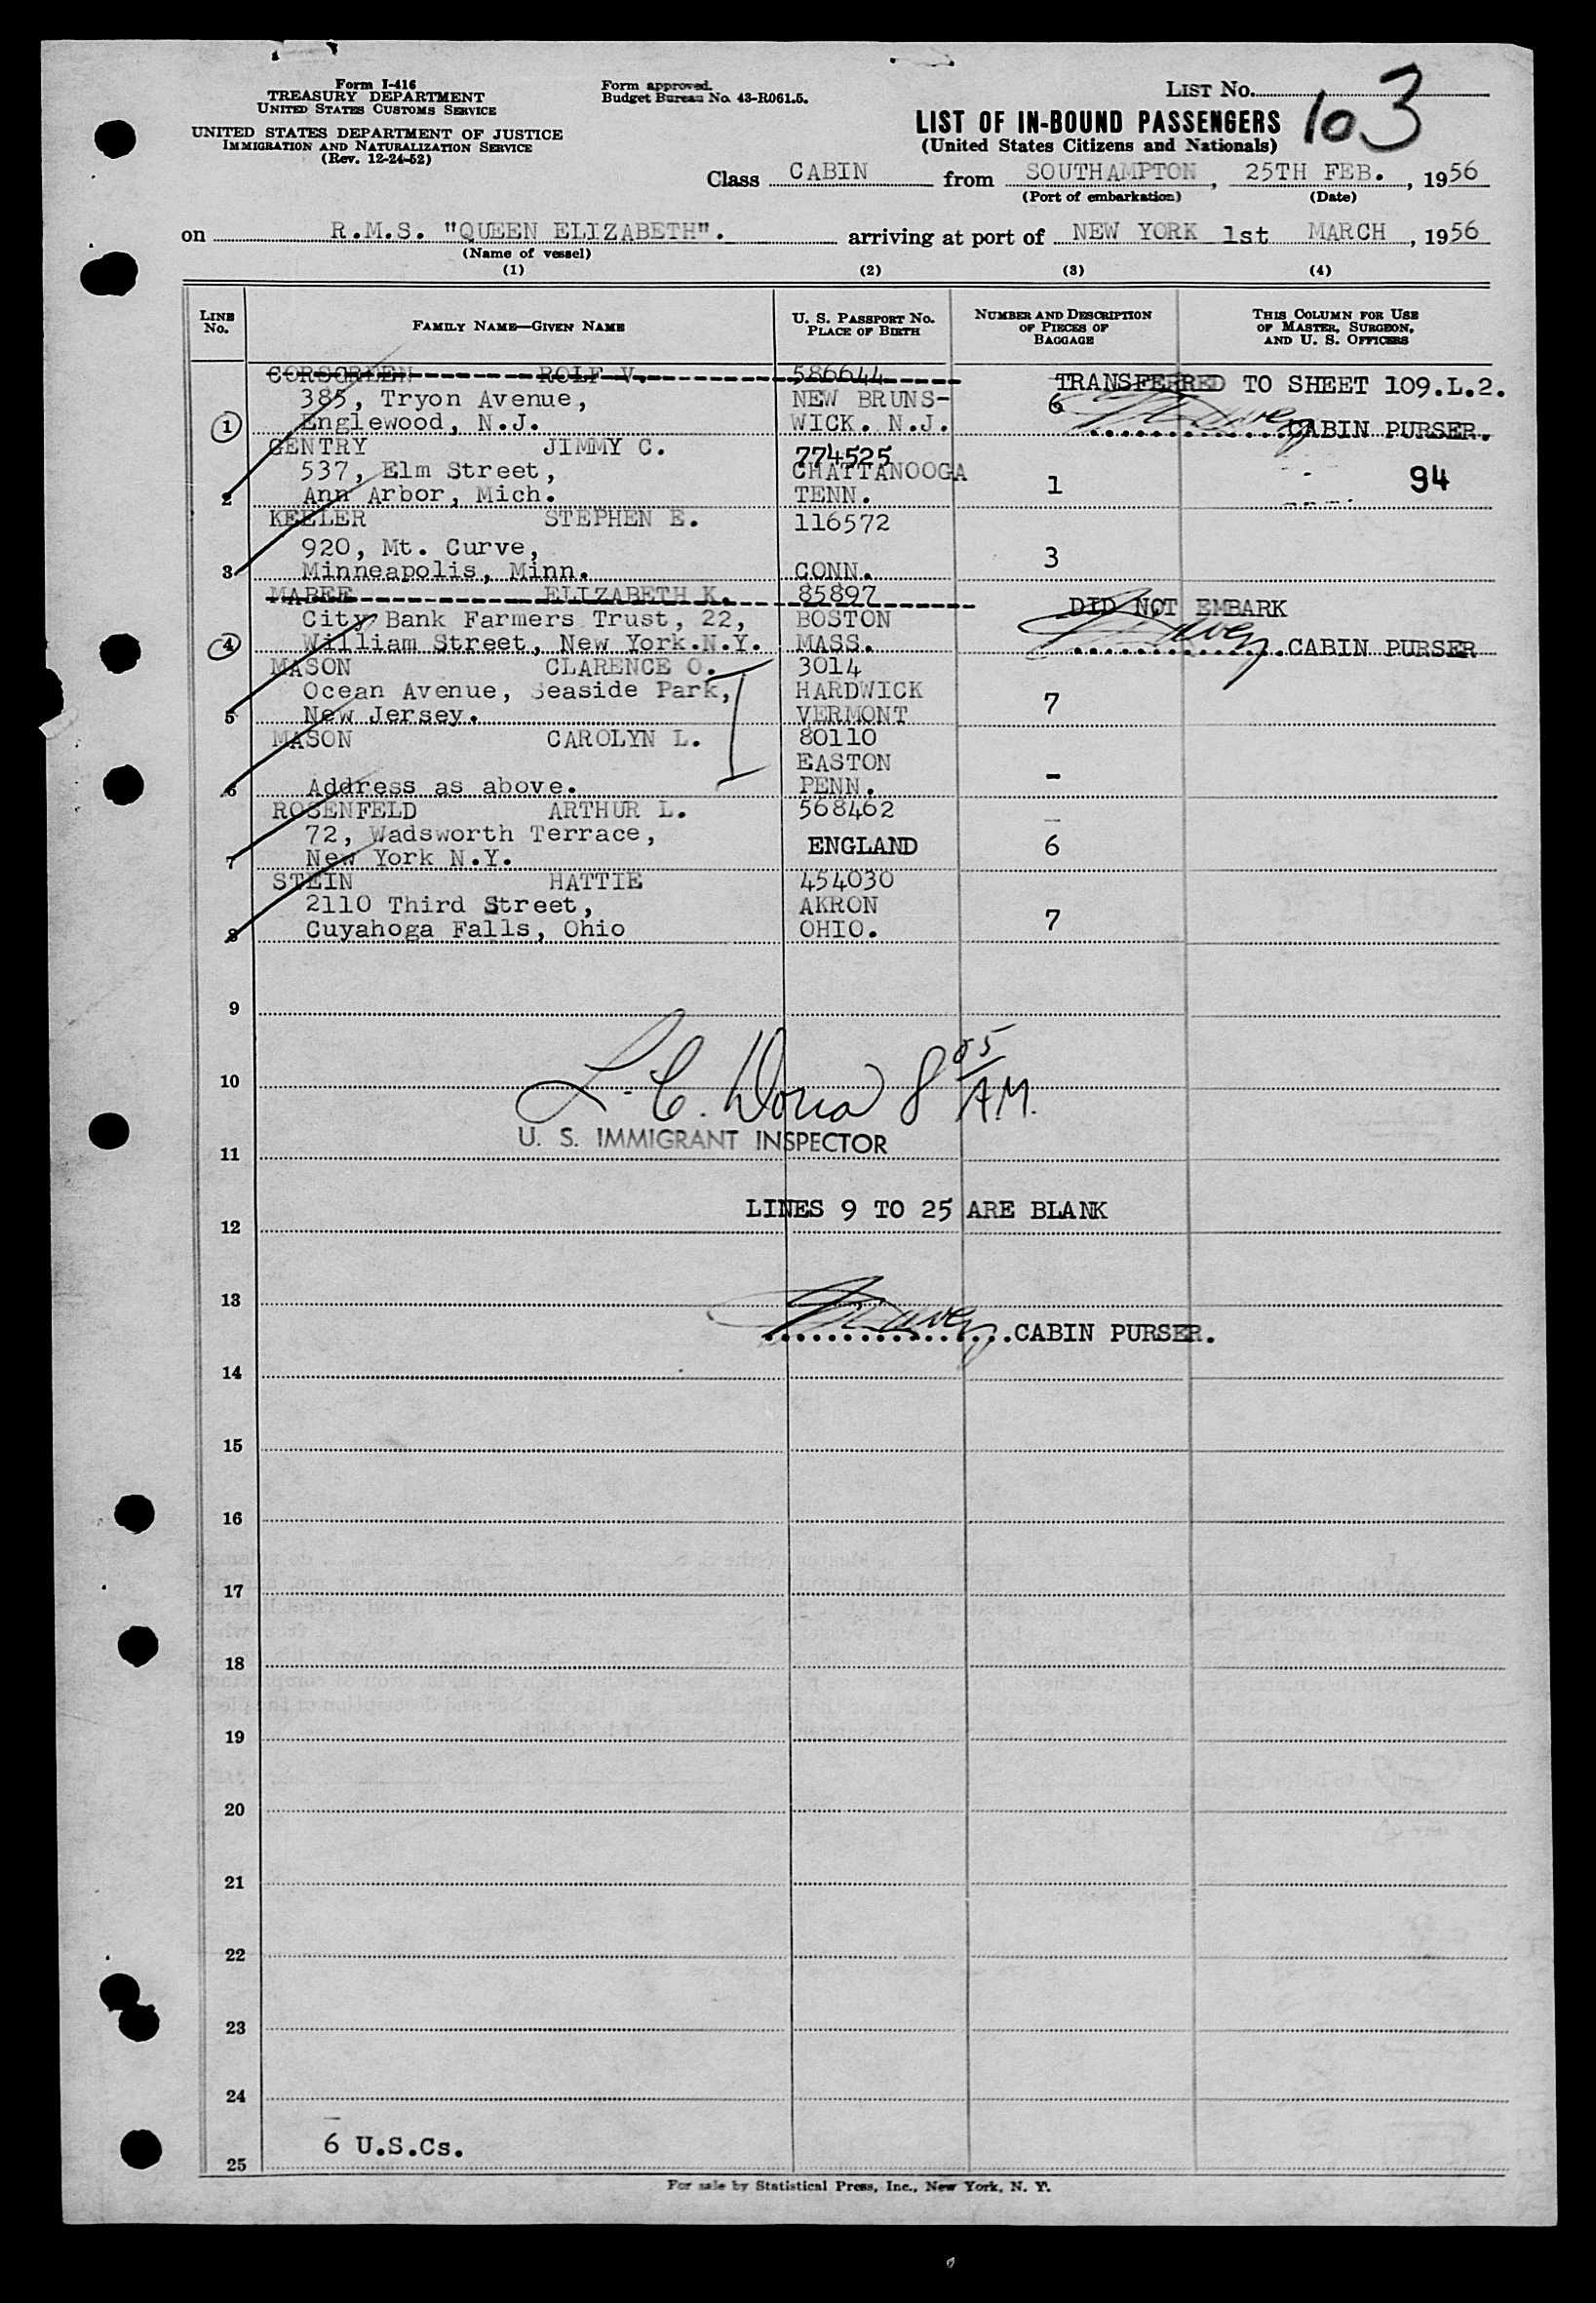 Form I-416
TREASURY DEPARTMENT
UNITED STATES CUSTOMS SERVICE
UNITED STATES DEPARTMENT OF JUSTICE
IMMIGRATION AND NATURALIZATION SERVICE
(Rev. 12-24-52)
Form approved.
Budget Bureau No. 43-R061.5.
LIST NO. 103
LIST OF IN-BOUND PASSENGERS
(United States Citizens and Nationals)
Class CABIN from SOUTHAMPTON, 25TH FEB., 1956
(Port of embarkation) (Date)
on R.M.S. "QUEEN ELIZABETH". arriving at port of NEW YORK 1st MARCH, 1956
(Name of vessel)
(1) (2) (3) (4)
LINE No. FAMILY NAME—GIVEN NAME U. S. PASSPORT NO. PLACE OF BIRTH NUMBER AND DESCRIPTION OF PIECES OF BAGGAGE THIS COLUMN FOR USE OF MASTER, SURGEON, AND U. S. OFFICERS
CORSGREEN ROLF V. 586644 TRANSFERRED TO SHEET 109.L.2.
385, Tryon Avenue, NEW BRUNS- 6
1 Englewood, N.J. WICK. N.J. CABIN PURSER.
GENTRY JIMMY C. 774525
537, Elm Street, CHATTANOOGA 94
2 Ann Arbor, Mich. TENN. 1
KEELER STEPHEN E. 116572
920, Mt. Curve, 3
3 Minneapolis, Minn. CONN.
MABEE ELIZABETH K. 85897 DID NOT EMBARK
City Bank Farmers Trust, 22, BOSTON
4 William Street, New York.N.Y. MASS. CABIN PURSER
MASON CLARENCE O. 3014
Ocean Avenue, Seaside Park, HARDWICK 7
5 New Jersey. VERMONT
MASON CAROLYN L. 80110
EASTON -
6 Address as above. PENN.
ROSENFELD ARTHUR L. 568462
72, Wadsworth Terrace, ENGLAND 6
7 New York N.Y.
STEIN HATTIE 454030
2110 Third Street, AKRON 7
8 Cuyahoga Falls, Ohio OHIO.
9
10 L. C. Doria 8 05 A.M.
U. S. IMMIGRANT INSPECTOR
11
LINES 9 TO 25 ARE BLANK
12
13
CABIN PURSER.
14
15
16
17
18
19
20
21
22
23
24
6 U.S.Cs.
25
For sale by Statistical Press, Inc., New York, N. Y.